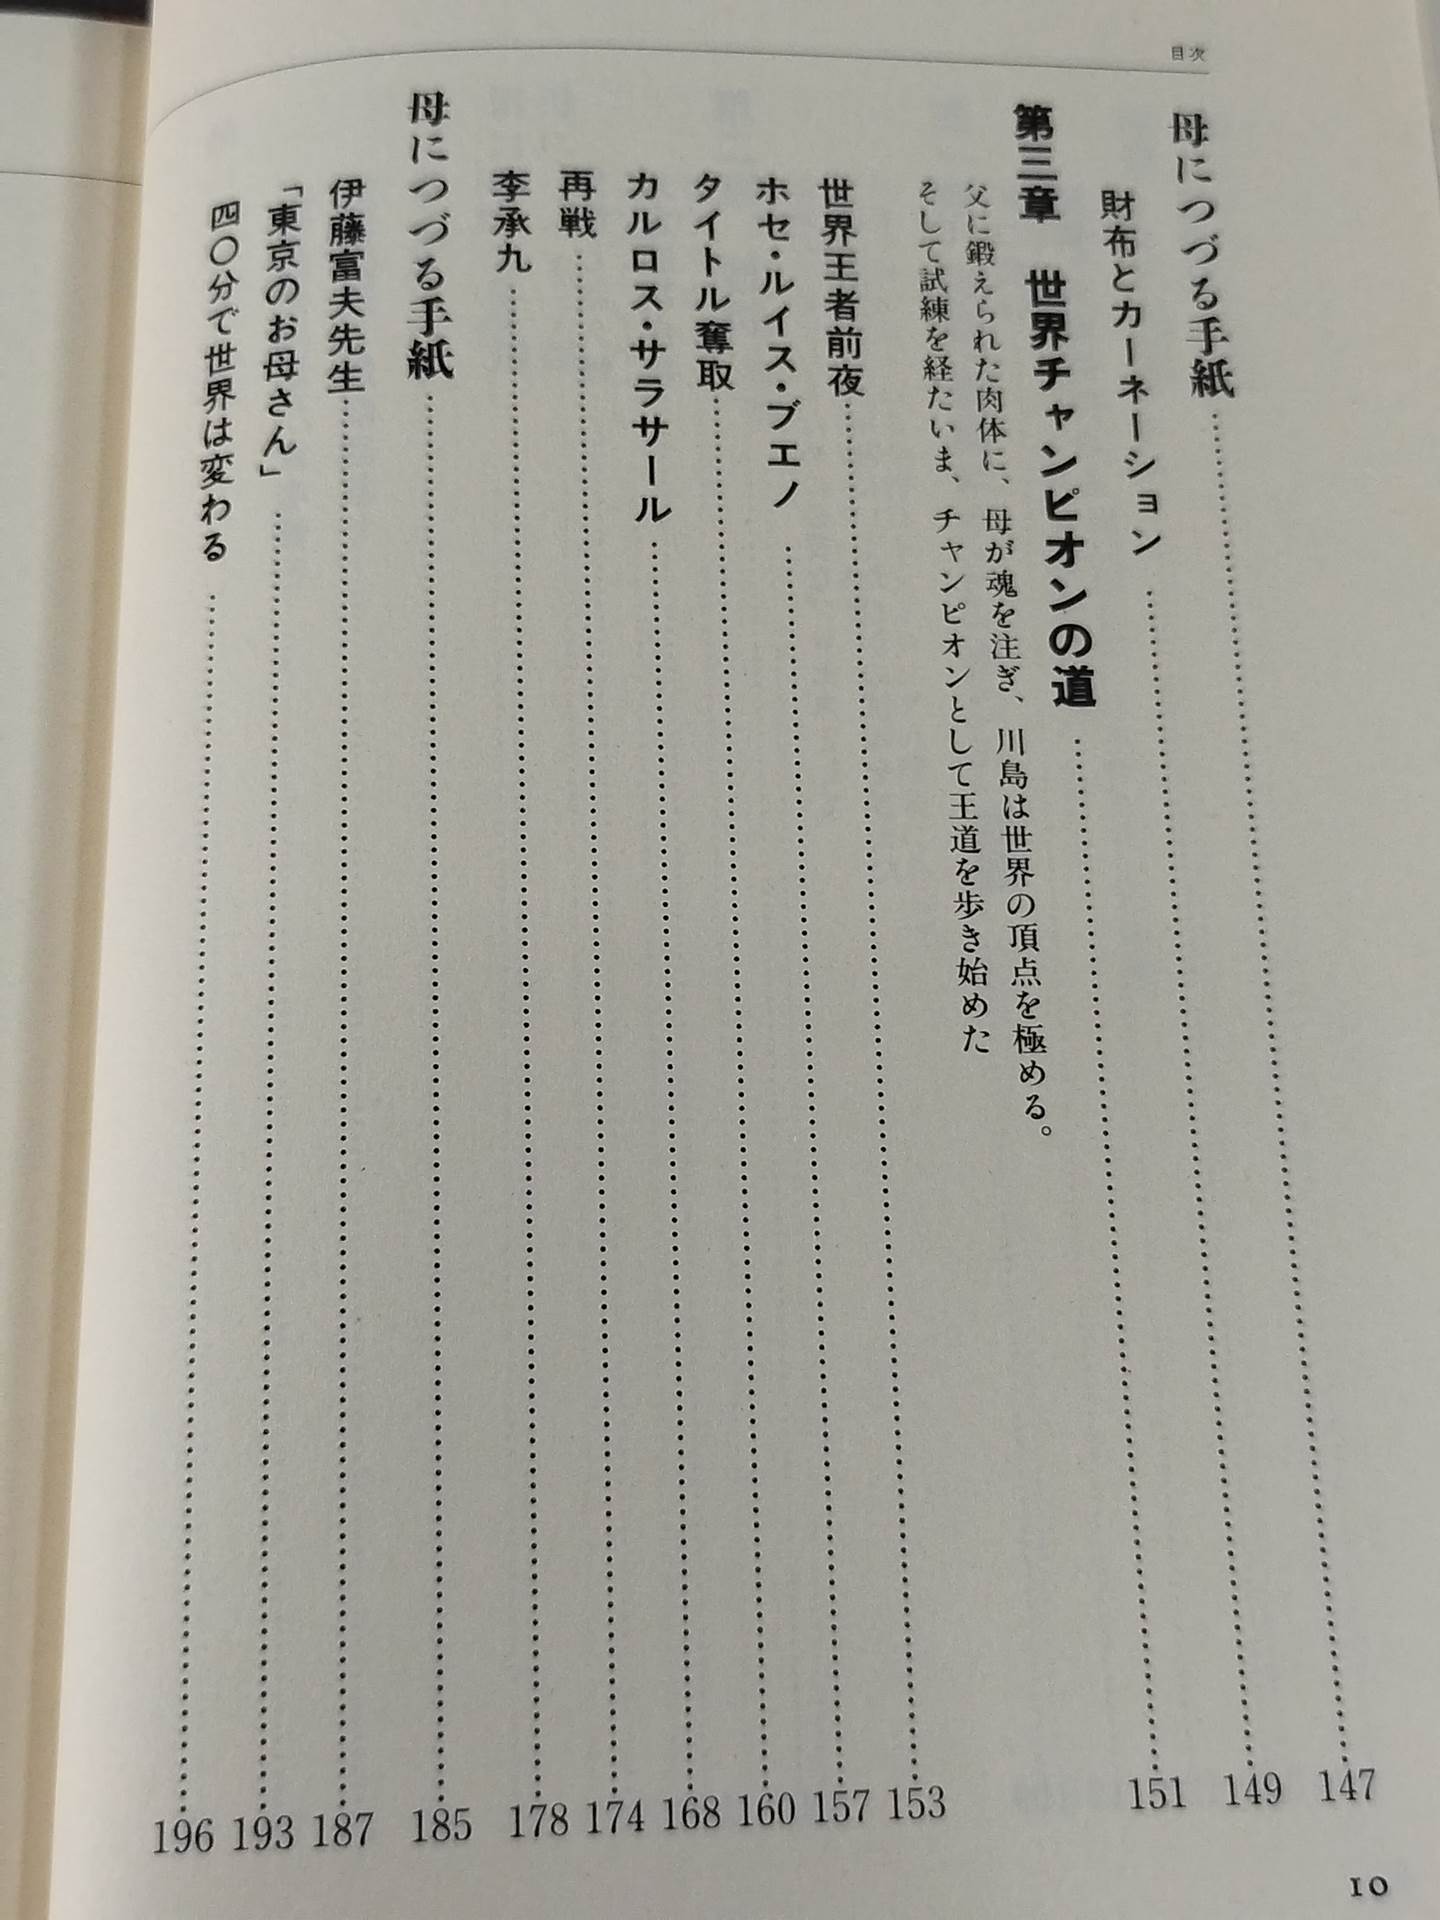 目次
母につづる手紙……147
財布とカーネーション……149
第三章 世界チャンピオンの道……151
父に鍛えられた肉体に、母が魂を注ぎ、川島は世界の頂点を極める。
そして試練を経たいま、チャンピオンとして王道を歩き始めた
世界王者前夜……153
ホセ・ルイス・ブエノ……157
タイトル奪取……160
カルロス・サラサール……168
再戦……174
李承九……178
母につづる手紙……185
伊藤富夫先生……187
「東京のお母さん」……193
四〇分で世界は変わる……196
10